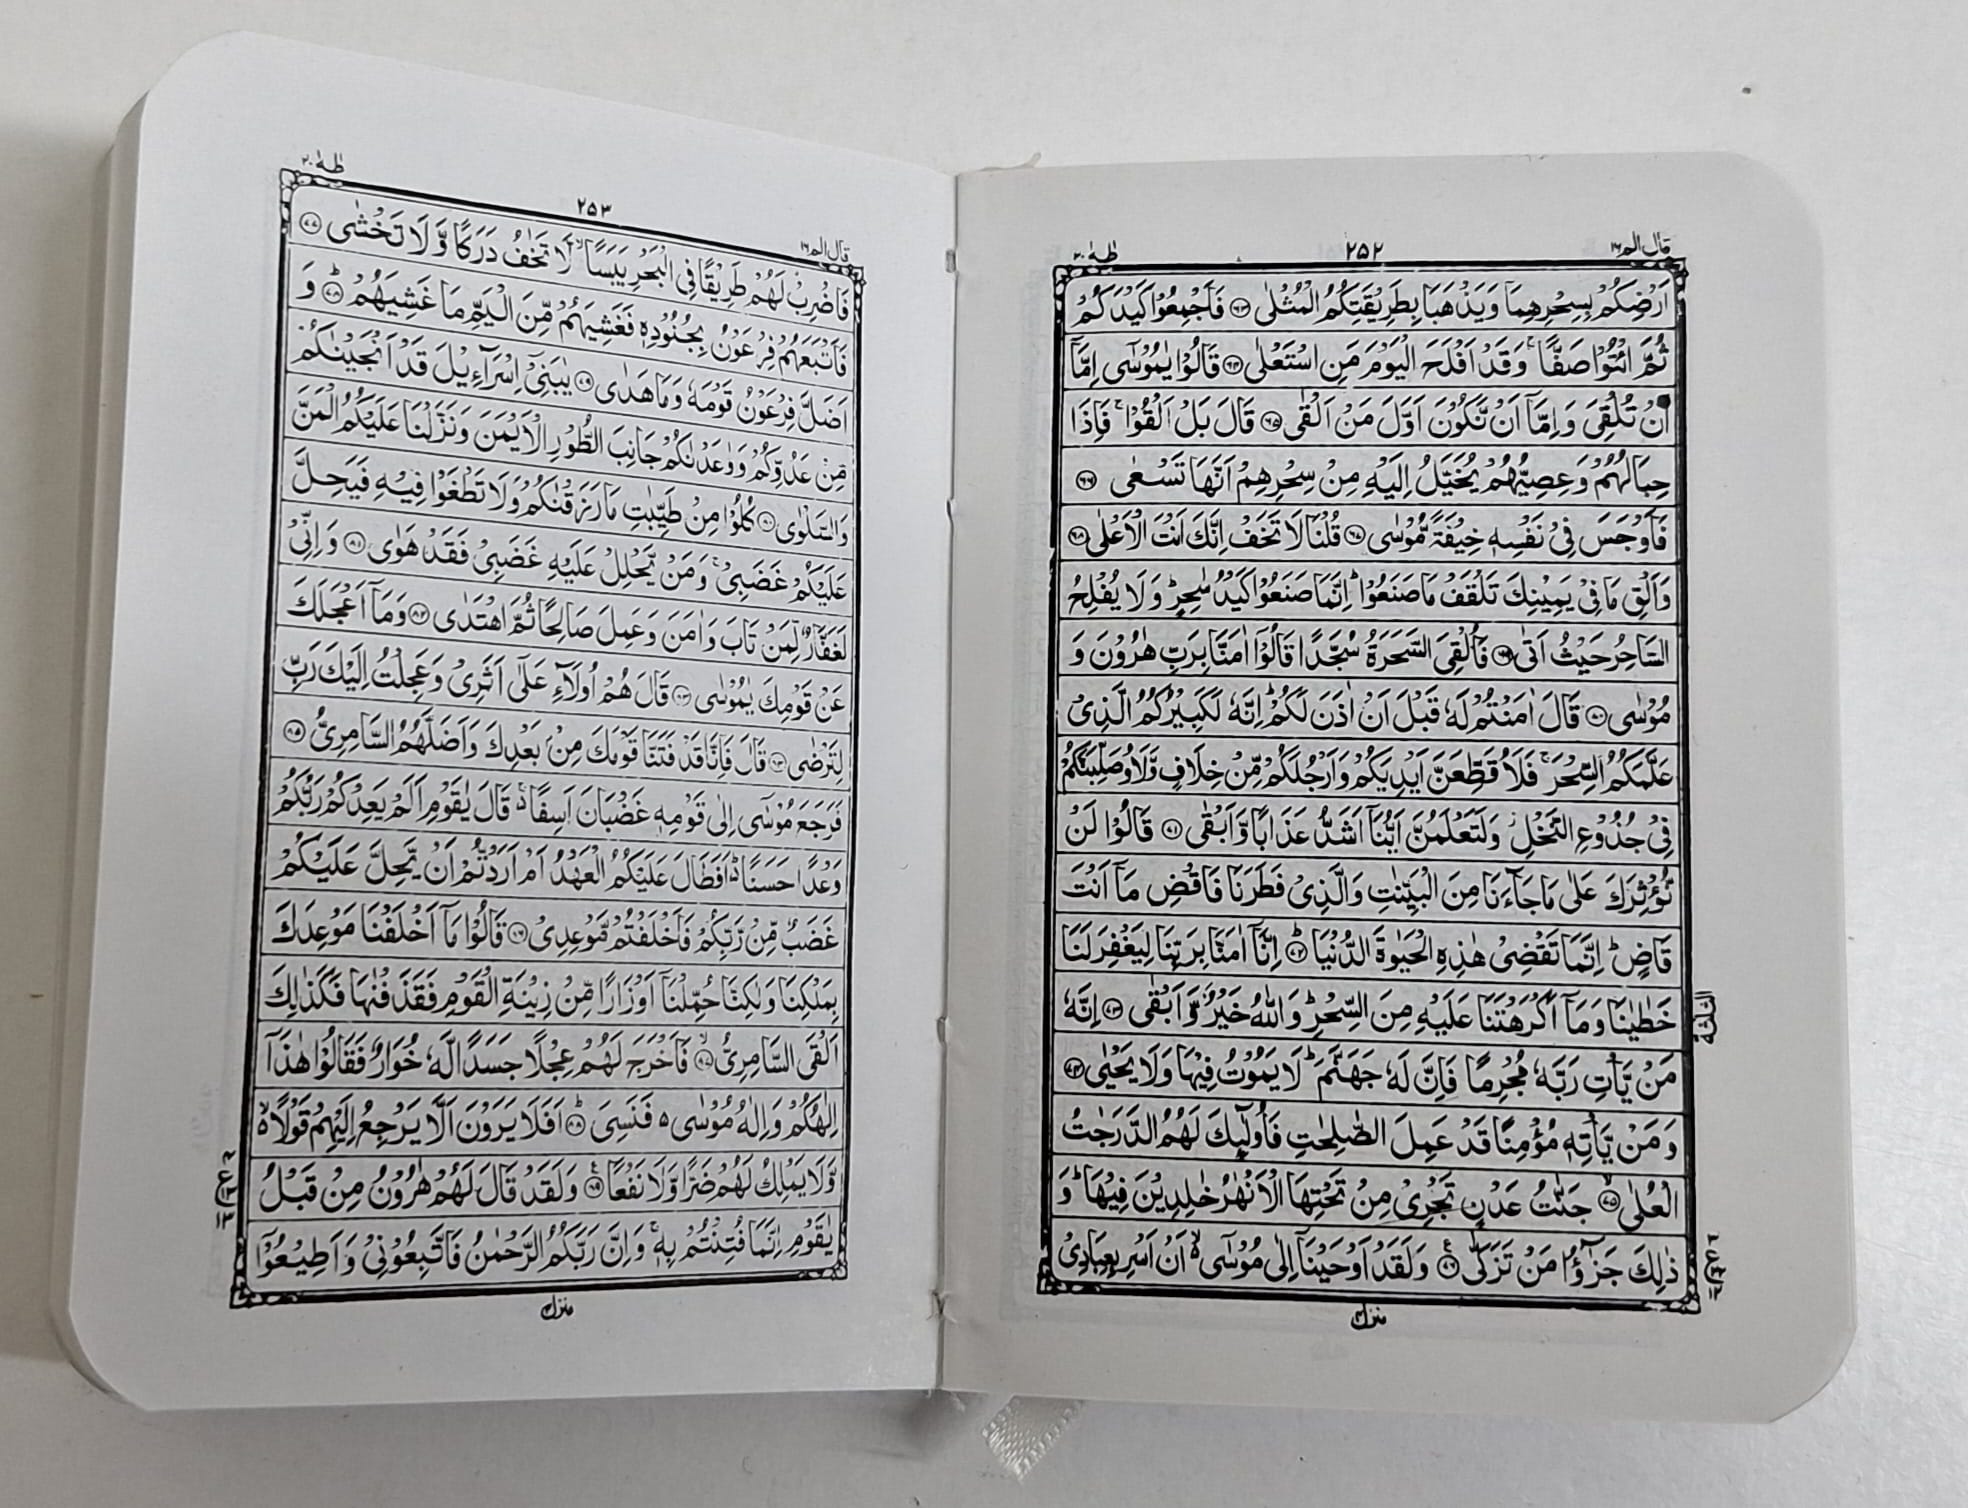 قال الم ١٦
٢٥٢
طٰهٰ ٢٠
اَرْضِكُمْ بِسِحْرِهِمَا وَيَذْهَبَا بِطَرِيْقَتِكُمُ الْمُثْلٰى ۝٦٣ فَاَجْمِعُوْا كَيْدَكُمْ
ثُمَّ ائْتُوْا صَفًّا ۚ وَقَدْ اَفْلَحَ الْيَوْمَ مَنِ اسْتَعْلٰى ۝٦٤ قَالُوْا يٰمُوْسٰٓى اِمَّآ
اَنْ تُلْقِىَ وَاِمَّآ اَنْ نَّكُوْنَ اَوَّلَ مَنْ اَلْقٰى ۝٦٥ قَالَ بَلْ اَلْقُوْا ۚ فَاِذَا
حِبَالُهُمْ وَعِصِيُّهُمْ يُخَيَّلُ اِلَيْهِ مِنْ سِحْرِهِمْ اَنَّهَا تَسْعٰى ۝٦٦
فَاَوْجَسَ فِىْ نَفْسِهٖ خِيْفَةً مُّوْسٰى ۝٦٧ قُلْنَا لَا تَخَفْ اِنَّكَ اَنْتَ الْاَعْلٰى ۝٦٨
وَاَلْقِ مَا فِىْ يَمِيْنِكَ تَلْقَفْ مَا صَنَعُوْا ؕ اِنَّمَا صَنَعُوْا كَيْدُ سٰحِرٍ ؕ وَلَا يُفْلِحُ
السَّاحِرُ حَيْثُ اَتٰى ۝٦٩ فَاُلْقِىَ السَّحَرَةُ سُجَّدًا قَالُوْٓا اٰمَنَّا بِرَبِّ هٰرُوْنَ وَ
مُوْسٰى ۝٧٠ قَالَ اٰمَنْتُمْ لَهٗ قَبْلَ اَنْ اٰذَنَ لَكُمْ ؕ اِنَّهٗ لَكَبِيْرُكُمُ الَّذِىْ
عَلَّمَكُمُ السِّحْرَ ۚ فَلَاُقَطِّعَنَّ اَيْدِيَكُمْ وَاَرْجُلَكُمْ مِّنْ خِلَافٍ وَّلَاُوصَلِّبَنَّكُمْ
فِىْ جُذُوْعِ النَّخْلِ ۫ وَلَتَعْلَمُنَّ اَيُّنَآ اَشَدُّ عَذَابًا وَّاَبْقٰى ۝٧١ قَالُوْا لَنْ
نُّؤْثِرَكَ عَلٰى مَا جَآءَنَا مِنَ الْبَيِّنٰتِ وَالَّذِىْ فَطَرَنَا فَاقْضِ مَآ اَنْتَ
قَاضٍ ؕ اِنَّمَا تَقْضِىْ هٰذِهِ الْحَيٰوةَ الدُّنْيَا ؕ ۝٧٢ اِنَّآ اٰمَنَّا بِرَبِّنَا لِيَغْفِرَ لَنَا
خَطٰيٰنَا وَمَآ اَكْرَهْتَنَا عَلَيْهِ مِنَ السِّحْرِ ؕ وَاللّٰهُ خَيْرٌ وَّاَبْقٰى ۝٧٣ اِنَّهٗ
الثلثة
مَنْ يَّاْتِ رَبَّهٗ مُجْرِمًا فَاِنَّ لَهٗ جَهَنَّمَ ؕ لَا يَمُوْتُ فِيْهَا وَلَا يَحْيٰى ۝٧٤
وَمَنْ يَّاْتِهٖ مُؤْمِنًا قَدْ عَمِلَ الصّٰلِحٰتِ فَاُولٰٓئِكَ لَهُمُ الدَّرَجٰتُ
الْعُلٰى ۙ ۝٧٥ جَنّٰتُ عَدْنٍ تَجْرِىْ مِنْ تَحْتِهَا الْاَنْهٰرُ خٰلِدِيْنَ فِيْهَا ؕ وَ
ذٰلِكَ جَزٰٓؤُا مَنْ تَزَكّٰى ۝٧٦ وَلَقَدْ اَوْحَيْنَآ اِلٰى مُوْسٰٓى ۙ۬ اَنْ اَسْرِ بِعِبَادِىْ
منزل ٤
قال الم ١٦
٢٥٣
طٰهٰ ٢٠
فَاضْرِبْ لَهُمْ طَرِيْقًا فِى الْبَحْرِ يَبَسًا ۙ لَّا تَخٰفُ دَرَكًا وَّلَا تَخْشٰى ۝٧٧
فَاَتْبَعَهُمْ فِرْعَوْنُ بِجُنُوْدِهٖ فَغَشِيَهُمْ مِّنَ الْيَمِّ مَا غَشِيَهُمْ ؕ ۝٧٨ وَ
اَضَلَّ فِرْعَوْنُ قَوْمَهٗ وَمَا هَدٰى ۝٧٩ يٰبَنِىْٓ اِسْرَآءِيْلَ قَدْ اَنْجَيْنٰكُمْ
مِّنْ عَدُوِّكُمْ وَوٰعَدْنٰكُمْ جَانِبَ الطُّوْرِ الْاَيْمَنَ وَنَزَّلْنَا عَلَيْكُمُ الْمَنَّ
وَالسَّلْوٰى ۝٨٠ كُلُوْا مِنْ طَيِّبٰتِ مَا رَزَقْنٰكُمْ وَلَا تَطْغَوْا فِيْهِ فَيَحِلَّ
عَلَيْكُمْ غَضَبِىْ ۚ وَمَنْ يَّحْلِلْ عَلَيْهِ غَضَبِىْ فَقَدْ هَوٰى ۝٨١ وَاِنِّىْ
لَغَفَّارٌ لِّمَنْ تَابَ وَاٰمَنَ وَعَمِلَ صَالِحًا ثُمَّ اهْتَدٰى ۝٨٢ وَمَآ اَعْجَلَكَ
عَنْ قَوْمِكَ يٰمُوْسٰى ۝٨٣ قَالَ هُمْ اُولَآءِ عَلٰٓى اَثَرِىْ وَعَجِلْتُ اِلَيْكَ رَبِّ
لِتَرْضٰى ۝٨٤ قَالَ فَاِنَّا قَدْ فَتَنَّا قَوْمَكَ مِنْۢ بَعْدِكَ وَاَضَلَّهُمُ السَّامِرِىُّ ۝٨٥
فَرَجَعَ مُوْسٰٓى اِلٰى قَوْمِهٖ غَضْبَانَ اَسِفًا ۚ۬ قَالَ يٰقَوْمِ اَلَمْ يَعِدْكُمْ رَبُّكُمْ
وَعْدًا حَسَنًا ؕ۬ اَفَطَالَ عَلَيْكُمُ الْعَهْدُ اَمْ اَرَدْتُّمْ اَنْ يَّحِلَّ عَلَيْكُمْ
غَضَبٌ مِّنْ رَّبِّكُمْ فَاَخْلَفْتُمْ مَّوْعِدِىْ ۝٨٦ قَالُوْا مَآ اَخْلَفْنَا مَوْعِدَكَ
بِمَلْكِنَا وَلٰكِنَّا حُمِّلْنَآ اَوْزَارًا مِّنْ زِيْنَةِ الْقَوْمِ فَقَذَفْنٰهَا فَكَذٰلِكَ
اَلْقَى السَّامِرِىُّ ۙ ۝٨٧ فَاَخْرَجَ لَهُمْ عِجْلًا جَسَدًا لَّهٗ خُوَارٌ فَقَالُوْا هٰذَآ
اِلٰهُكُمْ وَاِلٰهُ مُوْسٰى ۬ فَنَسِىَ ؕ ۝٨٨ اَفَلَا يَرَوْنَ اَلَّا يَرْجِعُ اِلَيْهِمْ قَوْلًا ۬ۙ
وَّلَا يَمْلِكُ لَهُمْ ضَرًّا وَّلَا نَفْعًا ۝٨٩ وَلَقَدْ قَالَ لَهُمْ هٰرُوْنُ مِنْ قَبْلُ
يٰقَوْمِ اِنَّمَا فُتِنْتُمْ بِهٖ ۚ وَاِنَّ رَبَّكُمُ الرَّحْمٰنُ فَاتَّبِعُوْنِىْ وَاَطِيْعُوْٓا
منزل ٤